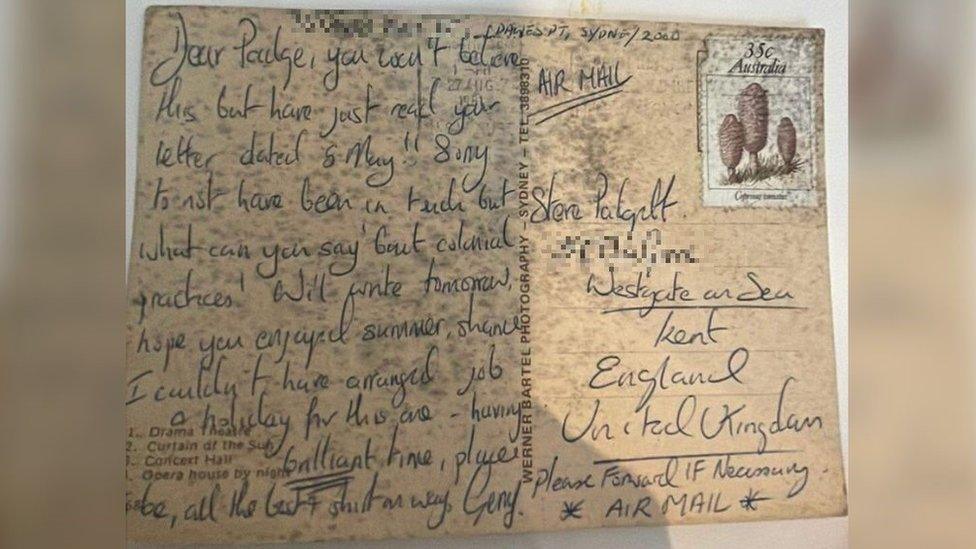 DAWES PT, SYDNEY 2000
Dear Padge, you won't believe
this but have just read your
letter dated 5 May!! Sorry
to not have been in touch but
what can you say 'bout colonial
practices! Will write tomorrow,
hope you enjoyed summer, shame
I couldn't have arranged job
a holiday for this one - having
brilliant time, place
be, all the best + shit on way. Gerry.
1. Drama Theatre
2. Curtain of the Sun
3. Concert Hall
4. Opera house by night
WERNER BARTEL PHOTOGRAPHY – SYDNEY – TEL. 3898310
27 AUG
AIR MAIL
35c
Australia
Coprinus comatus
Steve Padgett.
Westgate on Sea
Kent
England
United Kingdom
Please Forward IF Necessary.
* AIR MAIL *